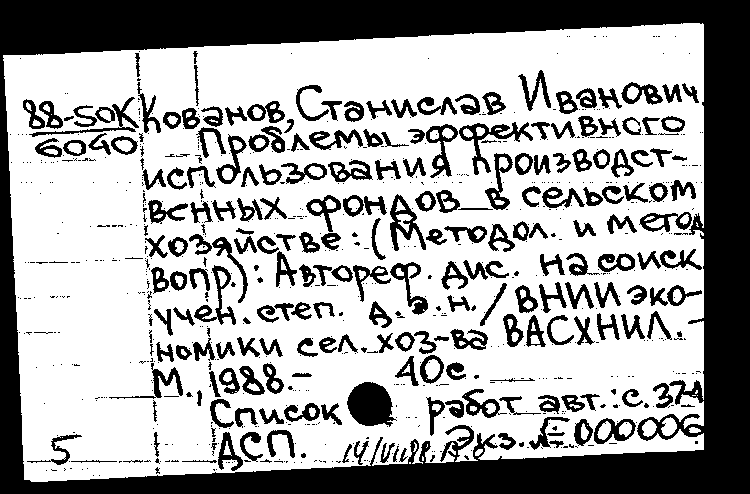 88-50К Кованов, Станислав Иванович.
6040 Проблемы эффективного
использования производст-
венных фондов в сельском
хозяйстве: (Методол. и метод
вопр.): Автореф. дис. на соиск
учен. степ. д.э.н. / ВНИИ эко-
номики сел. хоз-ва ВАСХНИЛ. -
М., 1988. - 40с.
Список работ авт.: с. 37-
ДСП. Экз. № 000006
5 14/VII88,